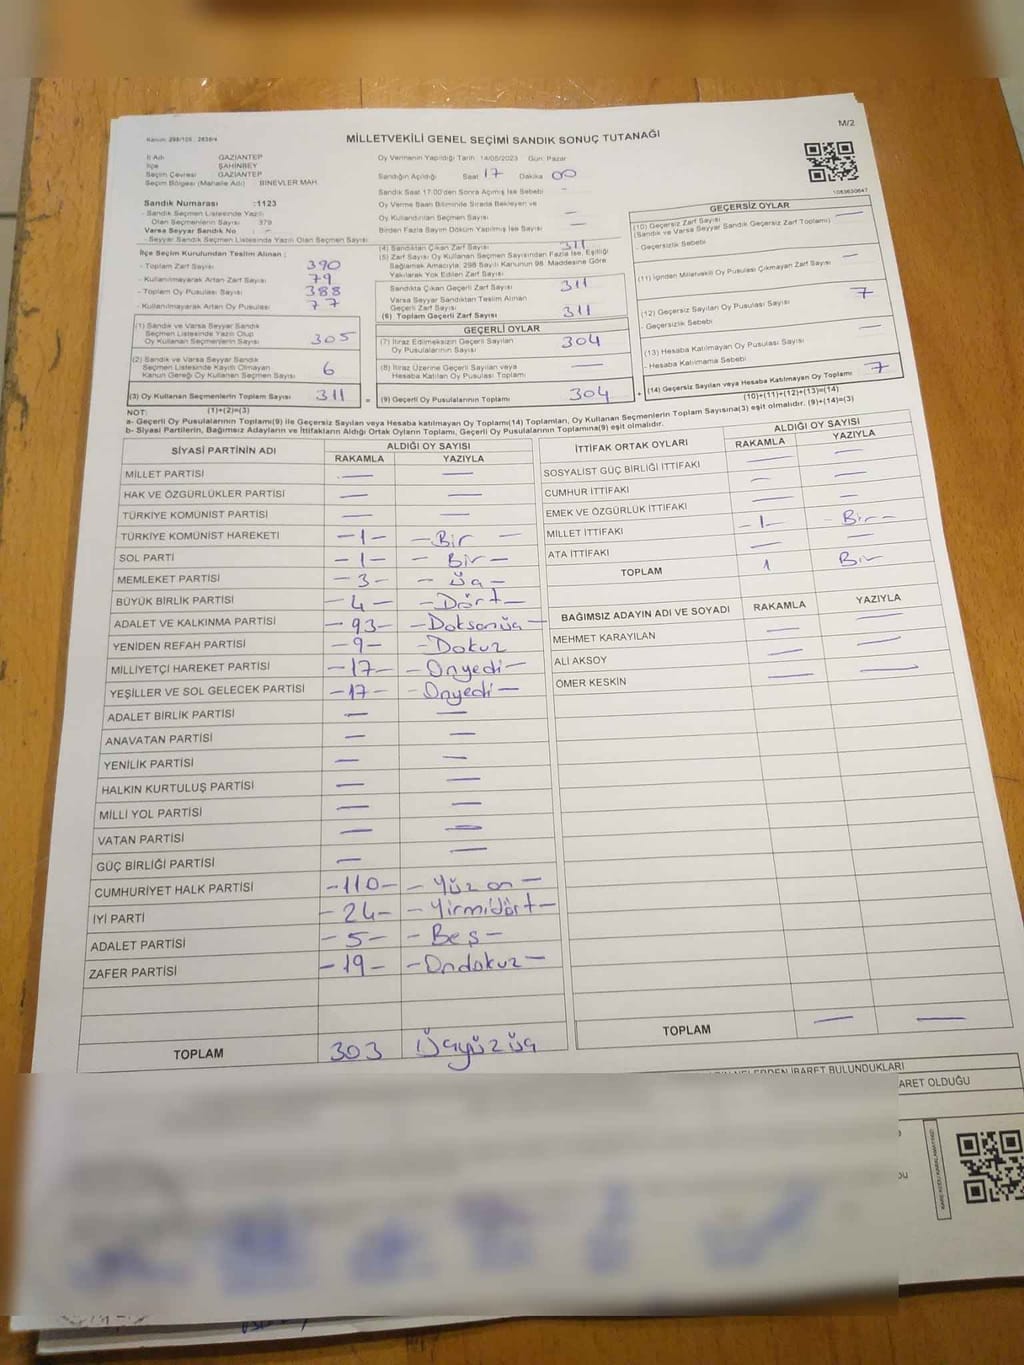 M/2
Kanun: 298/105 2839/4
MİLLETVEKİLİ GENEL SEÇİMİ SANDIK SONUÇ TUTANAĞI
İl Adı GAZİANTEP
İlçe ŞAHİNBEY
Seçim Çevresi GAZİANTEP
Seçim Bölgesi (Mahalle Adı) BİNEVLER MAH.
Oy Vermenin Yapıldığı Tarih 14/05/2023 Gün: Pazar
Sandığın Açıldığı Saat 17 Dakika 00
Sandık Saat 17:00'den Sonra Açılmış İse Sebebi -
Oy Verme Saati Bitiminde Sırada Bekleyen ve
Oy Kullandırılan Seçmen Sayısı —
Birden Fazla Sayım Döküm Yapılmış İse Sayısı —
Sandık Numarası :1123
- Sandık Seçmen Listesinde Yazılı
Olan Seçmenlerin Sayısı 379
Varsa Seyyar Sandık No : -
- Seyyar Sandık Seçmen Listesinde Yazılı Olan Seçmen Sayısı
İlçe Seçim Kurulundan Teslim Alınan ;
- Toplam Zarf Sayısı 390
- Kullanılmayarak Artan Zarf Sayısı 79
- Toplam Oy Pusulası Sayısı 388
- Kullanılmayarak Artan Oy Pusulası 77
(1) Sandık ve Varsa Seyyar Sandık
Seçmen Listesinde Yazılı Olup
Oy Kullanan Seçmenlerin Sayısı 305
(2) Sandık ve Varsa Seyyar Sandık
Seçmen Listesinde Kayıtlı Olmayan
Kanun Gereği Oy Kullanan Seçmen Sayısı 6
(3) Oy Kullanan Seçmenlerin Toplam Sayısı 311
(1)+(2)=(3)
(4) Sandıktan Çıkan Zarf Sayısı 311
(5) Zarf Sayısı Oy Kullanan Seçmen Sayısından Fazla İse, Eşitliği
Sağlamak Amacıyla, 298 Sayılı Kanunun 98. Maddesine Göre
Yakılarak Yok Edilen Zarf Sayısı
Sandıkta Çıkan Geçerli Zarf Sayısı 311
Varsa Seyyar Sandıktan Teslim Alınan
Geçerli Zarf Sayısı
(6) Toplam Geçerli Zarf Sayısı 311
GEÇERLİ OYLAR
(7) İtiraz Edilmeksizin Geçerli Sayılan
Oy Pusulalarının Sayısı 304
(8) İtiraz Üzerine Geçerli Sayılan veya
Hesaba Katılan Oy Pusulası Toplamı —
= (9) Geçerli Oy Pusulalarının Toplamı 304 +
1083630647
GEÇERSİZ OYLAR
(10) Geçersiz Zarf Sayısı —
(Sandık ve Varsa Seyyar Sandık Geçersiz Zarf Toplamı)
- Geçersizlik Sebebi
(11) İçinden Milletvekili Oy Pusulası Çıkmayan Zarf Sayısı —
(12) Geçersiz Sayılan Oy Pusulası Sayısı 7
- Geçersizlik Sebebi
(13) Hesaba Katılmayan Oy Pusulası Sayısı —
- Hesaba Katılmama Sebebi
(14) Geçersiz Sayılan veya Hesaba Katılmayan Oy Toplamı 7
(10)+(11)+(12)+(13)=(14)
NOT:
a- Geçerli Oy Pusulalarının Toplamı(9) ile Geçersiz Sayılan veya Hesaba Katılmayan Oy Toplamı(14) Toplamları, Oy Kullanan Seçmenlerin Toplam Sayısına(3) eşit olmalıdır. (9)+(14)=(3)
b- Siyasi Partilerin, Bağımsız Adayların ve İttifakların Aldığı Ortak Oyların Toplamı, Geçerli Oy Pusulalarının Toplamına(9) eşit olmalıdır.
SİYASİ PARTİNİN ADI ALDIĞI OY SAYISI
RAKAMLA YAZIYLA
MİLLET PARTİSİ — —
HAK VE ÖZGÜRLÜKLER PARTİSİ — —
TÜRKİYE KOMÜNİST PARTİSİ — —
TÜRKİYE KOMÜNİST HAREKETİ -1- -Bir-
SOL PARTİ -1- -Bir-
MEMLEKET PARTİSİ -3- -Üç-
BÜYÜK BİRLİK PARTİSİ -4- -Dört-
ADALET VE KALKINMA PARTİSİ -93- -Doksanüç-
YENİDEN REFAH PARTİSİ -9- -Dokuz
MİLLİYETÇİ HAREKET PARTİSİ -17- -Onyedi-
YEŞİLLER VE SOL GELECEK PARTİSİ -17- -Onyedi-
ADALET BİRLİK PARTİSİ — —
ANAVATAN PARTİSİ — —
YENİLİK PARTİSİ — —
HALKIN KURTULUŞ PARTİSİ — —
MİLLİ YOL PARTİSİ — —
VATAN PARTİSİ — —
GÜÇ BİRLİĞİ PARTİSİ — —
CUMHURİYET HALK PARTİSİ -110- -Yüzon-
İYİ PARTİ -24- -Yirmidört-
ADALET PARTİSİ -5- -Beş-
ZAFER PARTİSİ -19- -Ondokuz-
TOPLAM 303 Üçyüzüç
İTTİFAK ORTAK OYLARI ALDIĞI OY SAYISI
RAKAMLA YAZIYLA
SOSYALİST GÜÇ BİRLİĞİ İTTİFAKI — —
CUMHUR İTTİFAKI — —
EMEK VE ÖZGÜRLÜK İTTİFAKI — —
MİLLET İTTİFAKI -1- -Bir-
ATA İTTİFAKI — —
TOPLAM 1 Bir
BAĞIMSIZ ADAYIN ADI VE SOYADI RAKAMLA YAZIYLA
MEHMET KARAYILAN — —
ALİ AKSOY — —
ÖMER KESKİN — —
TOPLAM — —
NELERDEN İBARET BULUNDUKLARI
ARET OLDUĞU